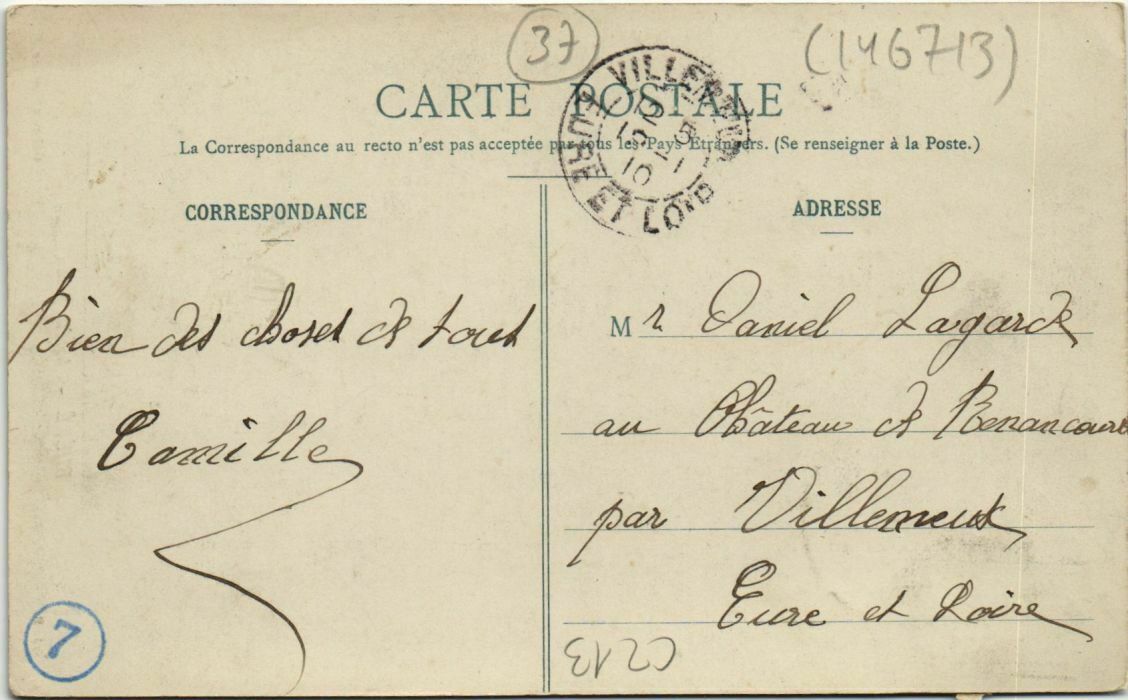 37
(146713)
CARTE POSTALE
La Correspondance au recto n'est pas acceptée par tous les Pays Etrangers. (Se renseigner à la Poste.)
EURE ET LOIR
CORRESPONDANCE
Bien des choses de tous
Camille
7
ADRESSE
Mr. Daniel Lagarde
au Château de Renancourt
par Villemeux
Eure et Loire
CZ13